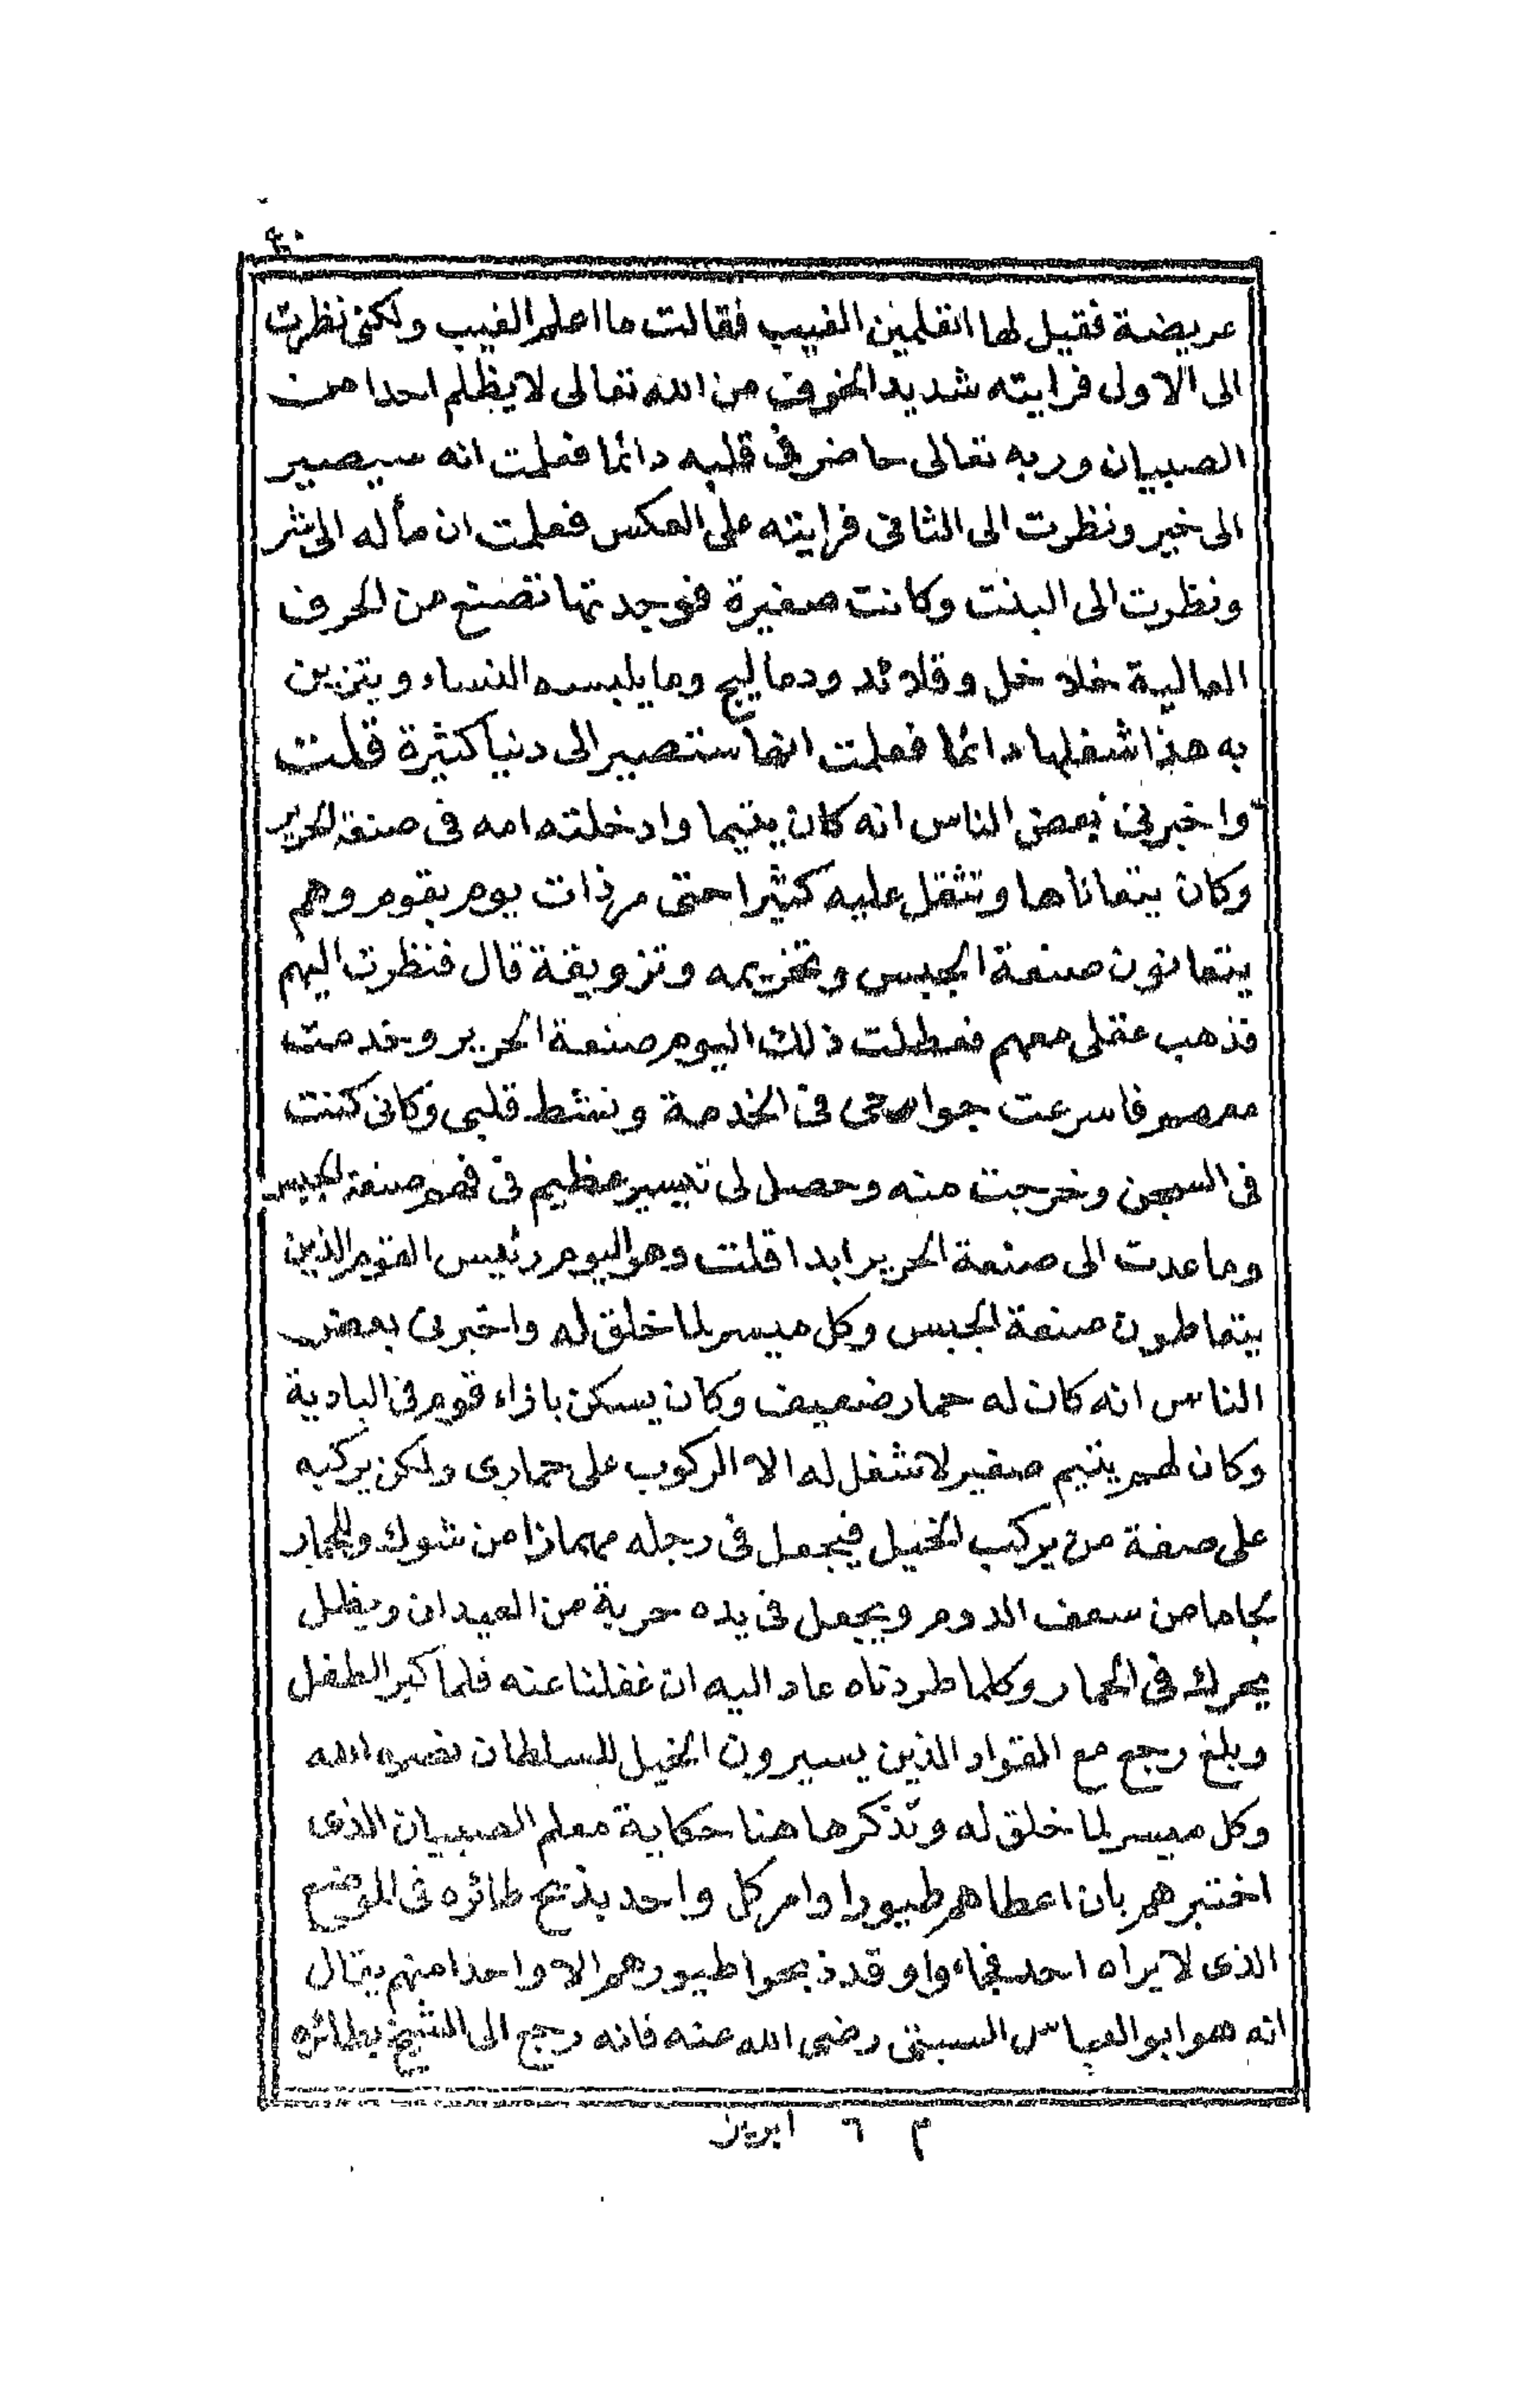 عريضة فقيل لها اتعلمين الغيب فقالت ما اعلم الغيب ولكني نظرت
الى الاول فرايته شديد الخوف من الله تعالى لا يظلم احدا من
الصبيان وربه تعالى حاضر في قلبه دائما فعلمت انه سيصير
الى خير ونظرت الى الثاني فرايته على العكس فعلمت ان مأله الى شر
ونظرت الى البنت وكانت صغيرة فوجدتها تصنع من الحروف
البالية خلاخل وقلائد ودماليج وما يلبسه النساء ويتزين
به هذا شغلها دائما فعلمت انها ستصير الى دنيا كثيرة قلت
واخبرني بعض الناس انه كان يتيما وادخلته امه في صنعة الحرير
وكان يتعاناها وتثقل عليه كثيرا حتى مر ذات يوم بقوم وهم
يتعانون صنعة الجبس وتخريمه وتزويقة قال فنظرت اليهم
فذهب عقلى معهم فعطلت ذلك اليوم صنعة الحرير وخدمت
معهم فاسرعت جوارحى في الخدمة ونشط قلبى وكانى كنت
في السجن وخرجت منه وحصل لى تيسير عظيم في فهم صنعة الجبس
وما عدت الى صنعة الحرير ابدا قلت وهو اليوم رئيس القوم الذين
يتعاطون صنعة الجبس وكل ميسر لما خلق له واخبرني بعض
الناس انه كان له حمار ضعيف وكان يسكن بازاء قوم في البادية
وكان لهم يتيم صغير لا شغل له الا الركوب على حمارى ولكن يركبه
على صفة من يركب الخيل فيجعل في رجله مهمازا من شوك وللحمار
لجاما من سعف الدوم ويجعل في يده حربة من العيدان ويظل
يحرك في الحمار وكلما طردناه عاد اليه ان غفلنا عنه فلما كبر الطفل
وبلغ رجع مع القواد الذين يسيرون الخيل للسلطان نصره الله
وكل ميسر لما خلق له وتذكر هاهنا حكاية معلم الصبيان الذى
اختبرهم بان اعطاهم طيورا وامر كل واحد بذبح طائره في الموضع
الذى لا يراه احد فجاءوا وقد ذبحوا طيورهم الا واحدا منهم يقال
انه هو ابو العباس السبتى رضى الله عنه فانه رجع الى الشيخ بطائره
م ٦ ابريز